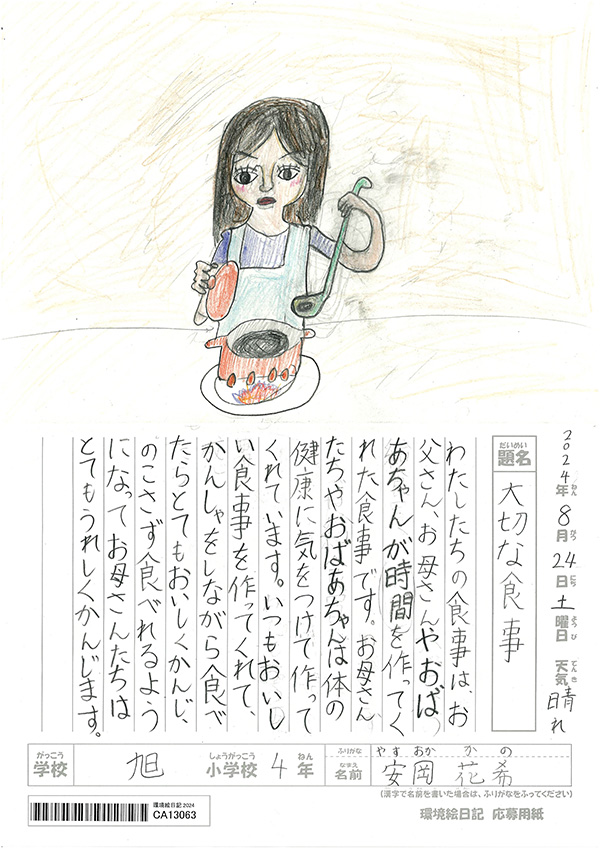 2024年8月24日土曜日 天気晴れ
ねん がつ にち ようび てんき
だいめい
題名 大切な食事
わたしたちの食事は、お
父さん、お母さんやおば
あちゃんが時間を作ってく
れた食事です。お母さん
たちやおばあちゃんは体の
健康に気をつけて作って
くれています。いつもおいし
い食事を作ってくれて、
かんしゃをしながら食べ
たらとてもおいしくかんじ、
のこさず食べれるよう
になってお母さんたちは
とてもうれしくかんじます。
がっこう しょうがっこう ねん ふりがな やす おか か の
学校 旭 小学校 4年 なまえ 名前 安岡 花希
(漢字で名前を書いた場合は、ふりがなをふってください)
環境絵日記 2024
CA13063
環境絵日記 応募用紙